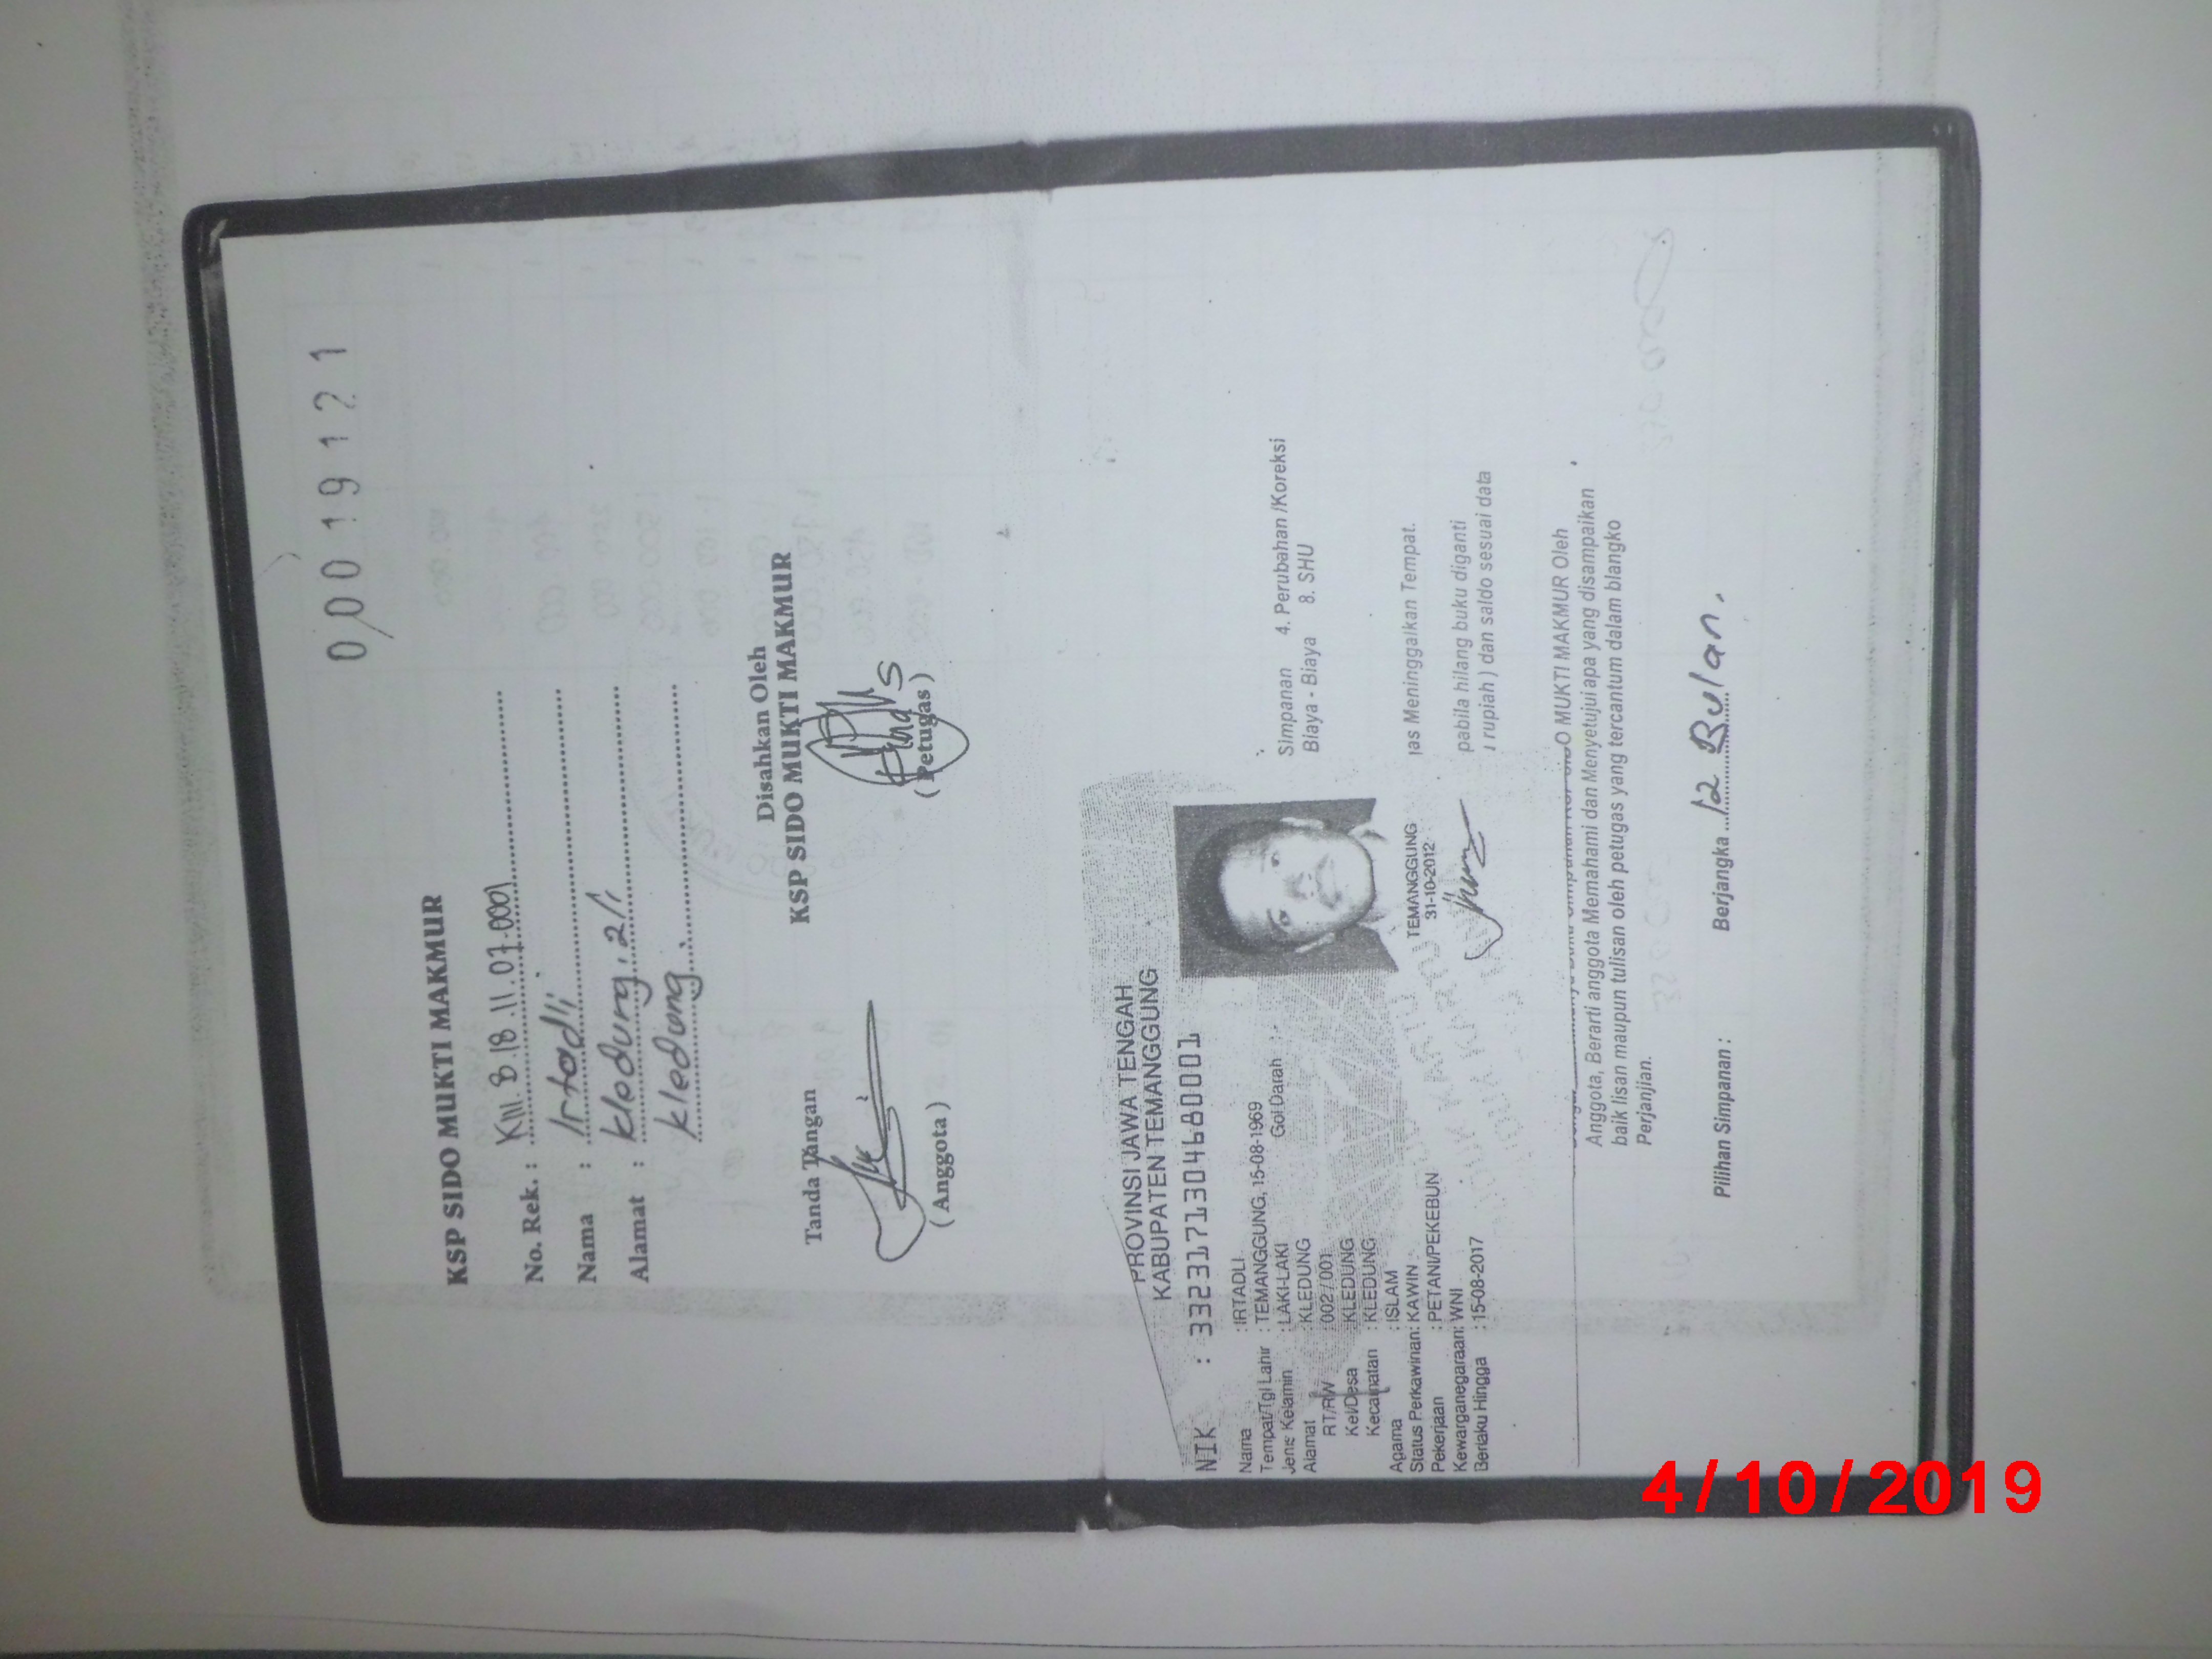 00019121
KSP SIDO MUKTI MAKMUR
No. Rek. : KM.B.18.11.07.0001
Nama : Irtadli
Alamat : Kledung, 2/1
Kledung
Disahkan Oleh
Tanda Tangan KSP SIDO MUKTI MAKMUR
( Anggota ) ( Petugas )
PROVINSI JAWA TENGAH
KABUPATEN TEMANGGUNG
NIK : 3323171304680001
Nama : IRTADLI
Tempat/Tgl Lahir : TEMANGGUNG, 15-08-1969
Jenis Kelamin : LAKI-LAKI Gol Darah : -
Alamat : KLEDUNG
RT/RW : 002 / 001
Kel/Desa : KLEDUNG
Kecamatan : KLEDUNG
Agama : ISLAM
Status Perkawinan: KAWIN
Pekerjaan : PETANI/PEKEBUN
Kewarganegaraan: WNI
Berlaku Hingga : 15-08-2017
TEMANGGUNG
31-10-2012
Simpanan 4. Perubahan /Koreksi
Biaya - Biaya 8. SHU
as Meninggalkan Tempat.
pabila hilang buku diganti
rupiah ) dan saldo sesuai data
MUKTI MAKMUR Oleh
Anggota, Berarti anggota Memahami dan Menyetujui apa yang disampaikan
baik lisan maupun tulisan oleh petugas yang tercantum dalam blangko
Perjanjian.
Pilihan Simpanan : Berjangka 12 Bulan.
4/10/2019